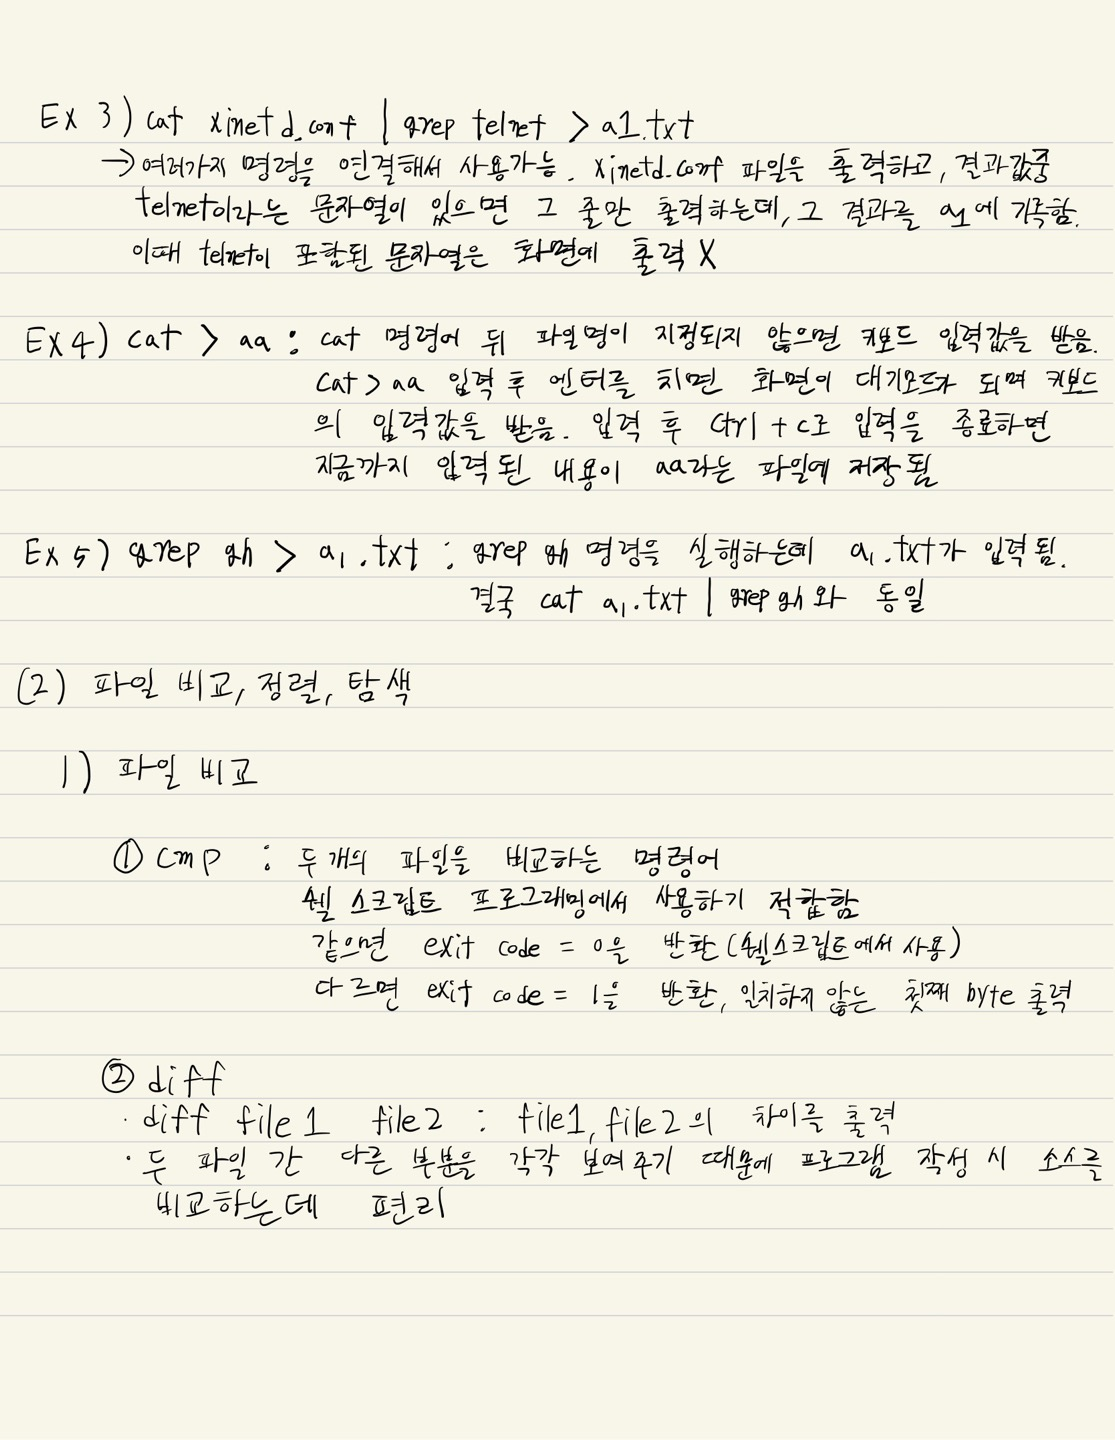 Ex 3) cat xinetd.conf | grep telnet > a1.txt
→ 여러가지 명령을 연결해서 사용가능. xinetd.conf 파일을 출력하고, 결과값중
telnet이라는 문자열이 있으면 그 줄만 출력하는데, 그 결과를 a1에 기록함.
이때 telnet이 포함된 문자열은 화면에 출력 X
Ex 4) cat > aa : cat 명령어 뒤 파일명이 지정되지 않으면 키보드 입력값을 받음.
cat > aa 입력 후 엔터를 치면 화면이 대기모드가 되며 키보드
의 입력값을 받음. 입력 후 Ctrl + c로 입력을 종료하면
지금까지 입력된 내용이 aa라는 파일에 저장됨
Ex 5) grep gh > a1.txt : grep gh 명령을 실행하는데 a1.txt가 입력됨.
결국 cat a1.txt | grep gh와 동일
(2) 파일 비교, 정렬, 탐색
1) 파일 비교
① cmp : 두개의 파일을 비교하는 명령어
쉘 스크립트 프로그래밍에서 사용하기 적합함
같으면 exit code = 0을 반환(쉘스크립트에서 사용)
다르면 exit code = 1을 반환, 일치하지 않는 첫째 byte 출력
② diff
· diff file1 file2 : file1, file2의 차이를 출력
· 두 파일 간 다른 부분을 각각 보여주기 때문에 프로그램 작성 시 소스를
비교하는데 편리